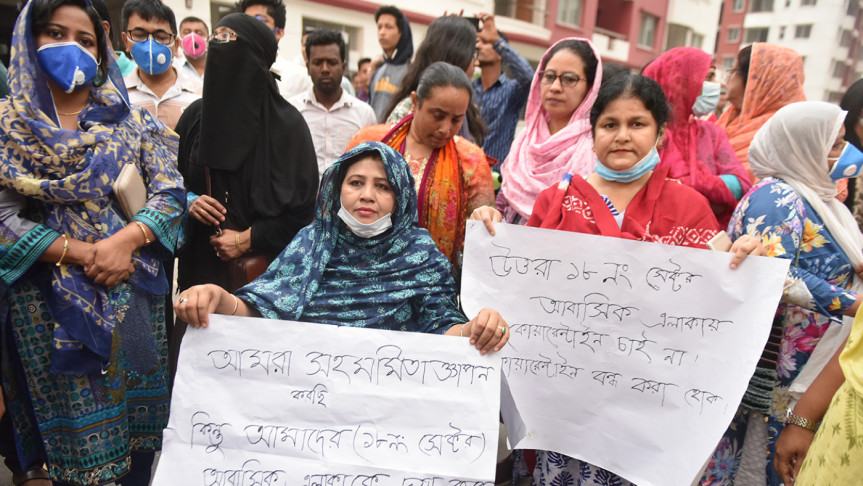 আমরা সহমর্মিতা জ্ঞাপন
করছি
কিন্তু আমাদের (১৮নং সেক্টর)
আবাসিক এলাকাকে দয়া করে
উত্তরা ১৮ নং সেক্টর
আবাসিক এলাকায়
কোয়ারেন্টাইন চাই না।
কোয়ারেন্টাইন বন্ধ করা হোক।